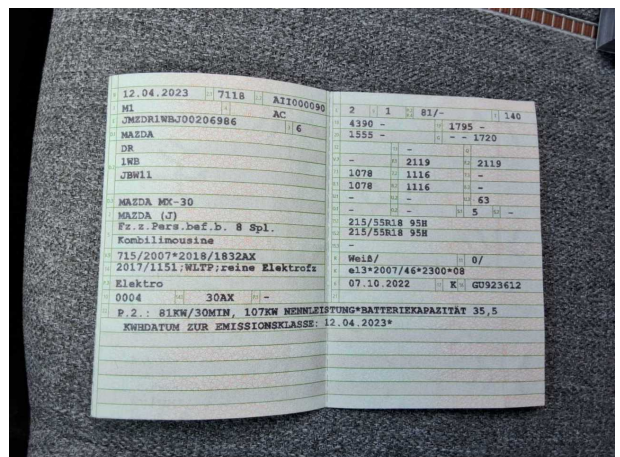 12.04.2023 7118 AII000090
M1 AC
JMZDR1WBJ00206986 6
MAZDA
DR
1WB
JBW11
MAZDA MX-30
MAZDA (J)
Fz.z.Pers.bef.b. 8 Spl.
Kombilimousine
715/2007*2018/1832AX
2017/1151;WLTP;reine Elektrofz
Elektro
0004 30AX -
2 1 81/- 140
4390 - 1795 -
1555 - - - 1720
-
- 2119 2119
1078 1116 -
1078 1116 -
- - 63
- - 5 -
215/55R18 95H
215/55R18 95H
-
Weiß/ 0/
e13*2007/46*2300*08
07.10.2022 K GU923612
P.2.: 81KW/30MIN, 107KW NENNLEISTUNG*BATTERIEKAPAZITÄT 35,5
KWHDATUM ZUR EMISSIONSKLASSE: 12.04.2023*